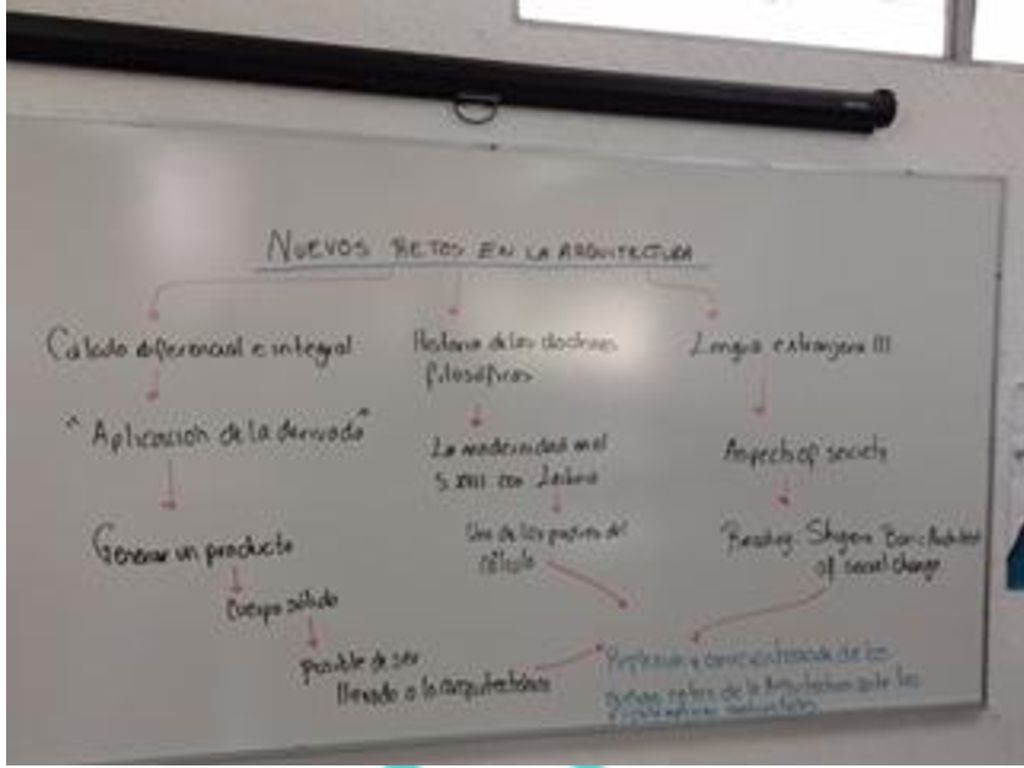 NUEVOS RETOS EN LA ARQUITECTURA
Cálculo diferencial e integral
"Aplicación de la derivada"
Generar un producto
Cuerpo sólido
posible de ser
llevado a lo arquitectónico
Historia de las doctrinas
filosóficas
La modernidad en el
S. XVII con Leibniz
Uno de los padres del
cálculo
Lengua extranjera III
Aspects of society
Reading: Shigeru Ban: Architect
of social change
Reflexión y concientización de los
nuevos retos de la Arquitectura ante los